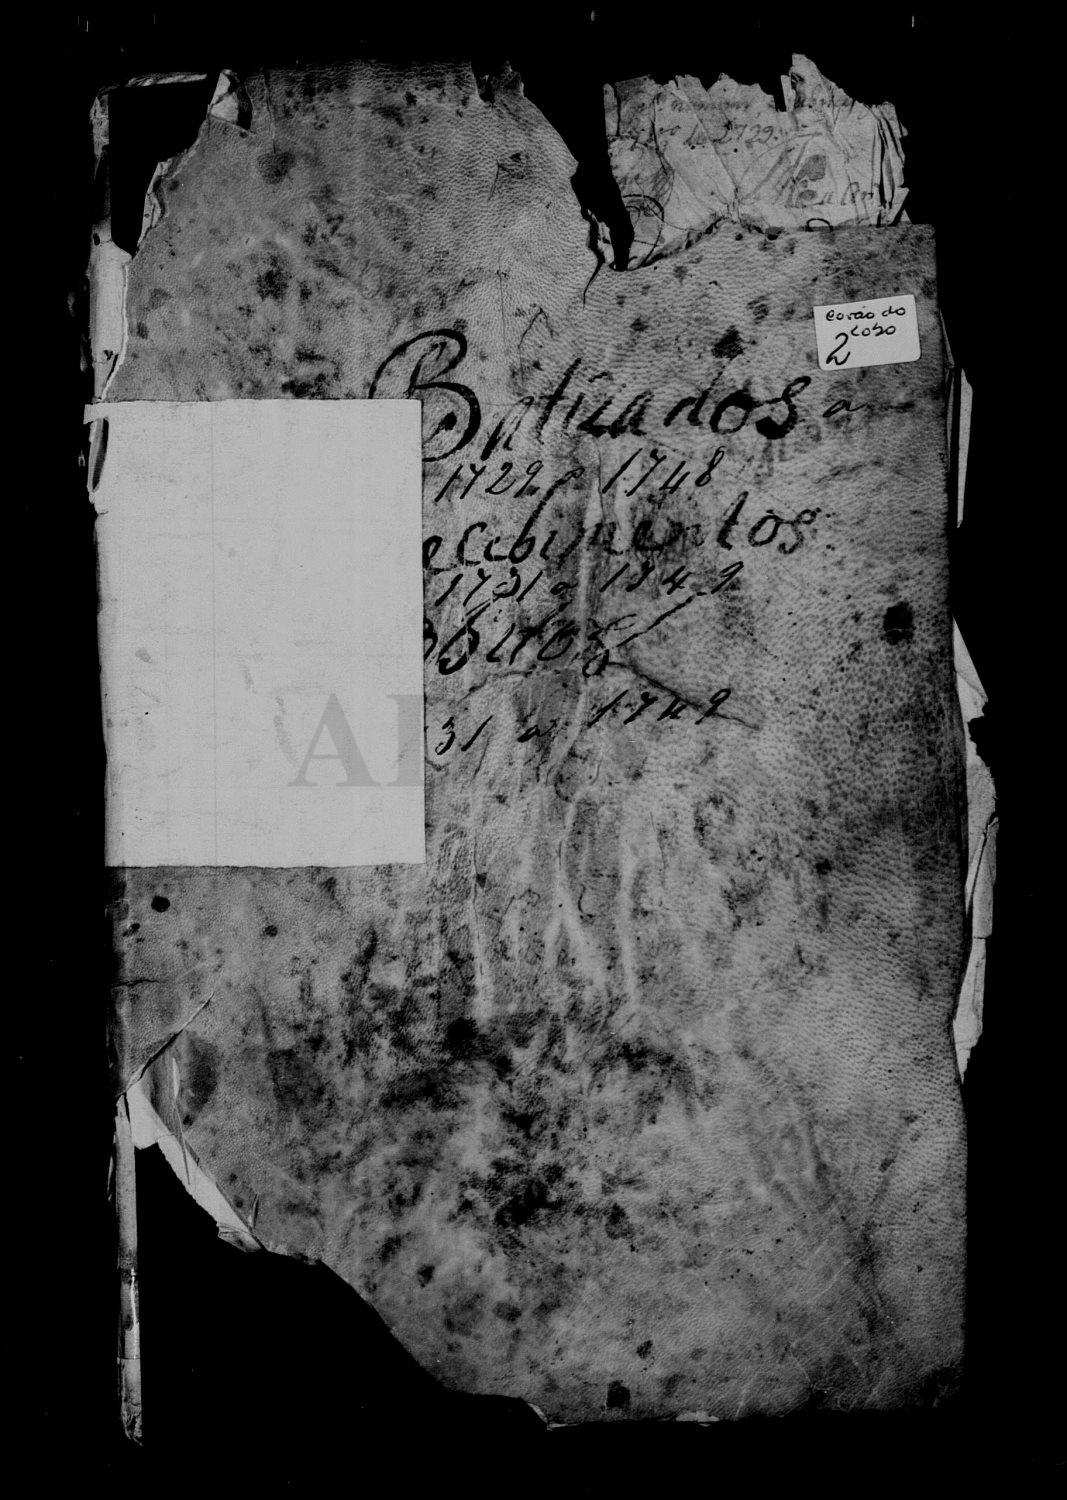 1729
Covão do
Lobo
2
Bptizados a
1729 a 1748
ecebimentos
1731 a 1749
Obitos
31 a 1749